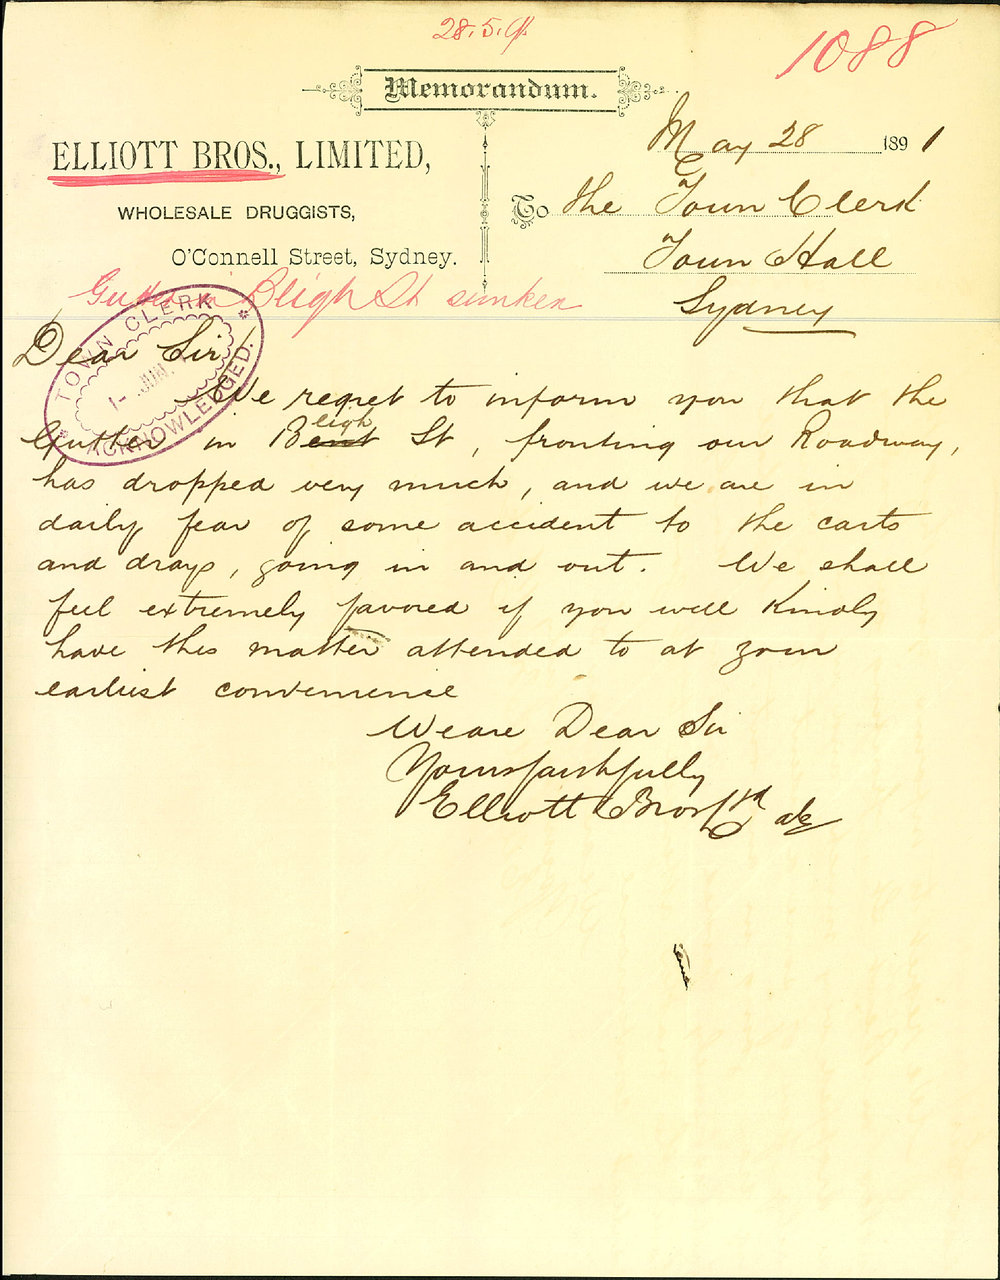 28.5.91
1088
Memorandum.
ELLIOTT BROS., LIMITED,
WHOLESALE DRUGGISTS,
O'Connell Street, Sydney.
May 28 1891
To The Town Clerk
Town Hall
Sydney
Gutter in Bligh St sunken
TOWN CLERK
1- JUN.
ACKNOWLEDGED.
Dear Sir
We regret to inform you that the
Gutter in Bent ligh St, fronting our Roadway,
has dropped very much, and we are in
daily fear of some accident to the carts
and drays, going in and out. We shall
feel extremely favored if you will Kindly
have this matter attended to at your
earliest convenience
We are Dear Sir
Yours faithfully
Elliott Bros Ltd